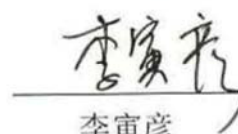 李寅彦
李寅彦